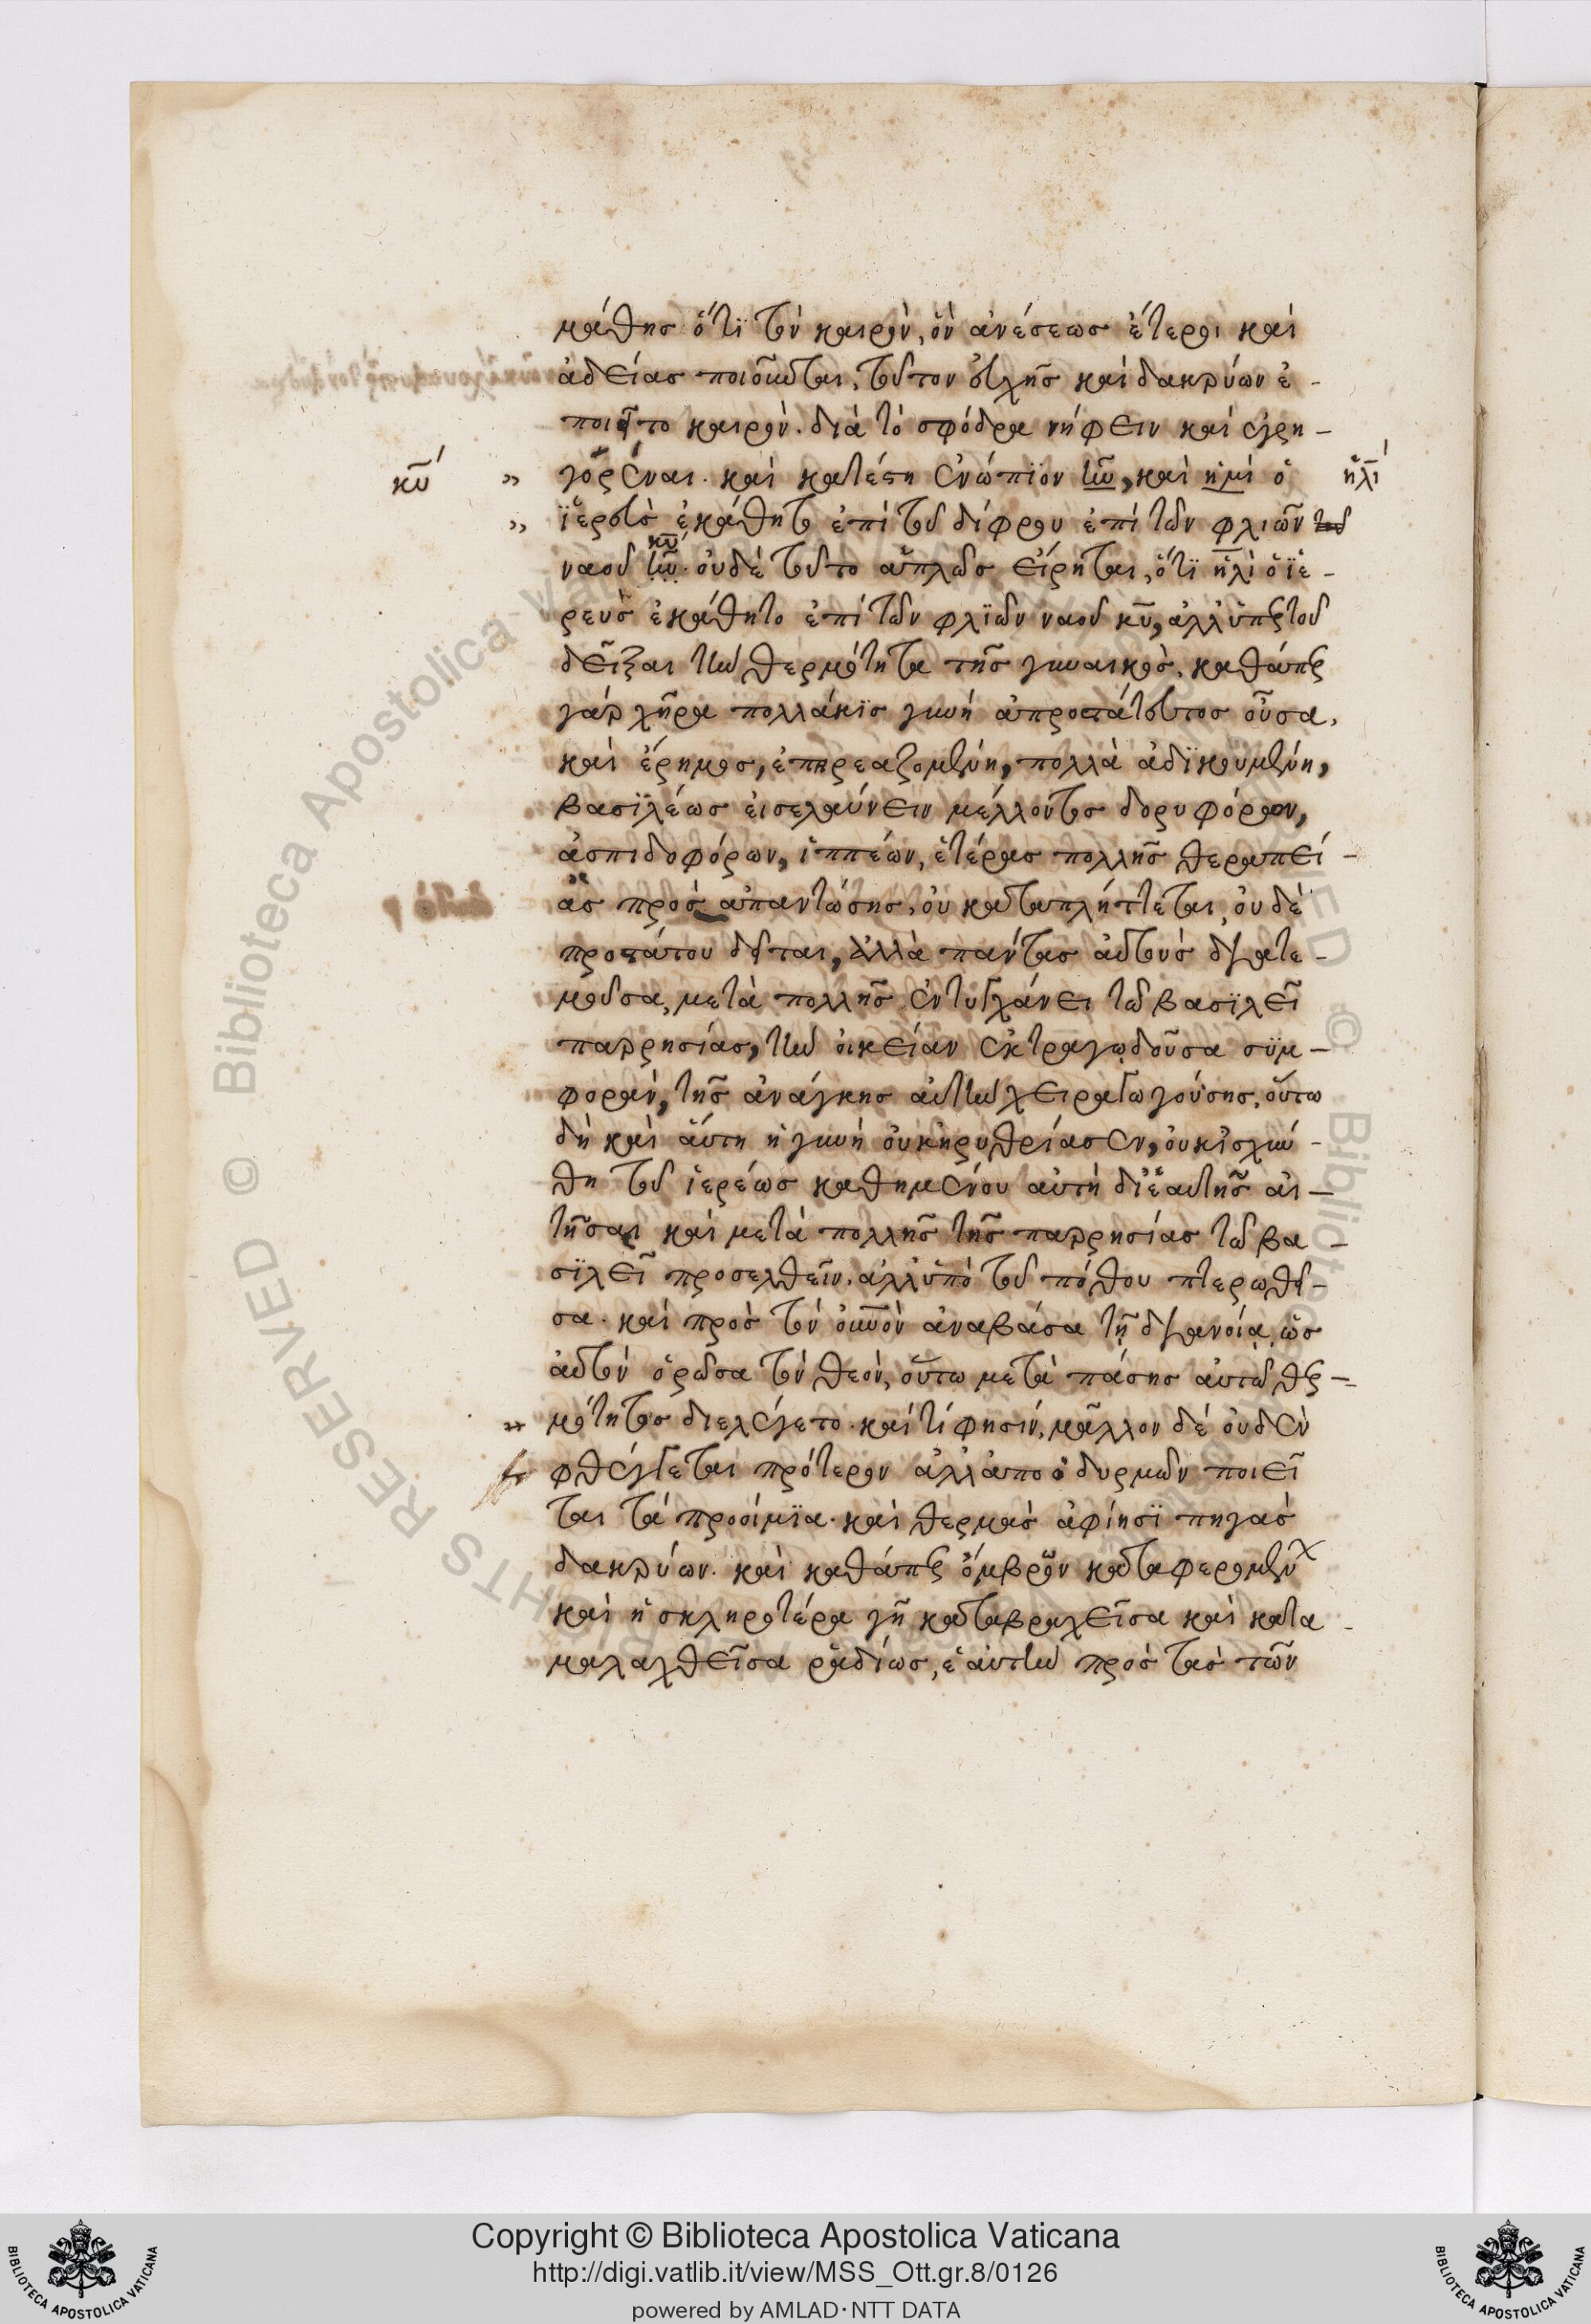 μάθης ὅτι τὸν καιρὸν, ὃν ἀνέσεως ἕτεροι καὶ
ἀδείας ποιοῦνται, τοῦτον εὐχῆς καὶ δακρύων ἐ-
ποιεῖτο καιρὸν. διὰ τὸ σφόδρα νήφειν καὶ ἐγρη-
κ͞υ " γορέναι. καὶ κατέστη ἐνώπϊον ι͞υ, καὶ ἡμὶ ὁ ἠλὶ
" ἱερεὺς ἐκάθητο ἐπὶ τοῦ δίφρου ἐπὶ τῶν φλιῶν τοῦ
κ͞υ
ναοῦ ι͞υ. οὐδὲ τοῦτο ἁπλῶς εἴρηται, ὅτϊ ἠλὶ ὁ ἱε-
ρεὺς ἐκάθητο ἐπὶ τῶν φλϊῶν ναοῦ κ͞υ, ἀλλ' ὑπὲρ τοῦ
δεῖξαι τὴν θερμότητα τῆς γυναικὸς. καθάπερ
γὰρ χῆρα πολλάκϊς γυνὴ ἀπροστάτευτος οὖσα,
καὶ ἔρημος, ἐπηρεαζομένη, πολλὰ ἀδϊκουμένη,
βασϊλέως εἰσελαύνειν μέλλοντος δορυφόρων,
ἀσπιδοφόρων, ἱππέων, ἑτέρας πολλῆς θεραπεί-
ας προσαπαντώσης, οὐ καταπλήττεται, οὐδὲ
προστάτου δεῖται, ἀλλὰ πάντας αὐτοὺς διατε-
μοῦσα, μετὰ πολλῆς ἐντυγχάνει τῷ βασϊλεῖ
παρρησίας, τὴν οἰκείαν ἐκτραγῳδοῦσα συμ-
φορὰν, τῆς ἀνάγκης αὐτὴν χειραγωγούσης. οὕτω
δὴ καὶ αὕτη ἡ γυνὴ οὐκ ἠρυθρίασεν, οὐκ ἠσχύν-
θη τοῦ ἱερέως καθημένου αὐτὴ δι' ἑαυτῆς αἰ-
τῆσαι καὶ μετὰ πολλῆς τῆς παρρησίας τῷ βα-
σϊλεῖ προσελθεῖν. ἀλλ' ὑπὸ τοῦ πόθου πτερωθεῖ-
σα. καὶ πρὸς τὸν ο͞υνὸν ἀναβάσα τῇ διανοίᾳ, ὡς
αὐτὸν ὁρῶσα τὸν θεὸν, οὕτω μετὰ πάσης αὐτῷ θερ-
" μότητος διελέγετο. καὶ τί φησίν, μᾶλλον δὲ οὐδὲν
φθέγγεται πρότερον ἀλλ' ἀπὸ ὀδυρμῶν ποιεῖ
ται τὰ προοίμϊα. καὶ θερμὰς ἀφίησϊ πηγὰς
δακρύων. καὶ καθάπερ ὄμβρων καταφερομένων
καὶ ἡ σκληροτέρα γῆ καταβραχεῖσα καὶ κατα-
μαλαχθεῖσα ῥᾳδίως, ἑαυτὴν πρὸς τὰς τῶν
Copyright © Biblioteca Apostolica Vaticana
http://digi.vatlib.it/view/MSS_Ott.gr.8/0126
powered by AMLAD·NTT DATA
BIBLIOTECA APOSTOLICA VATICANA
BIBLIOTECA APOSTOLICA VATICANA